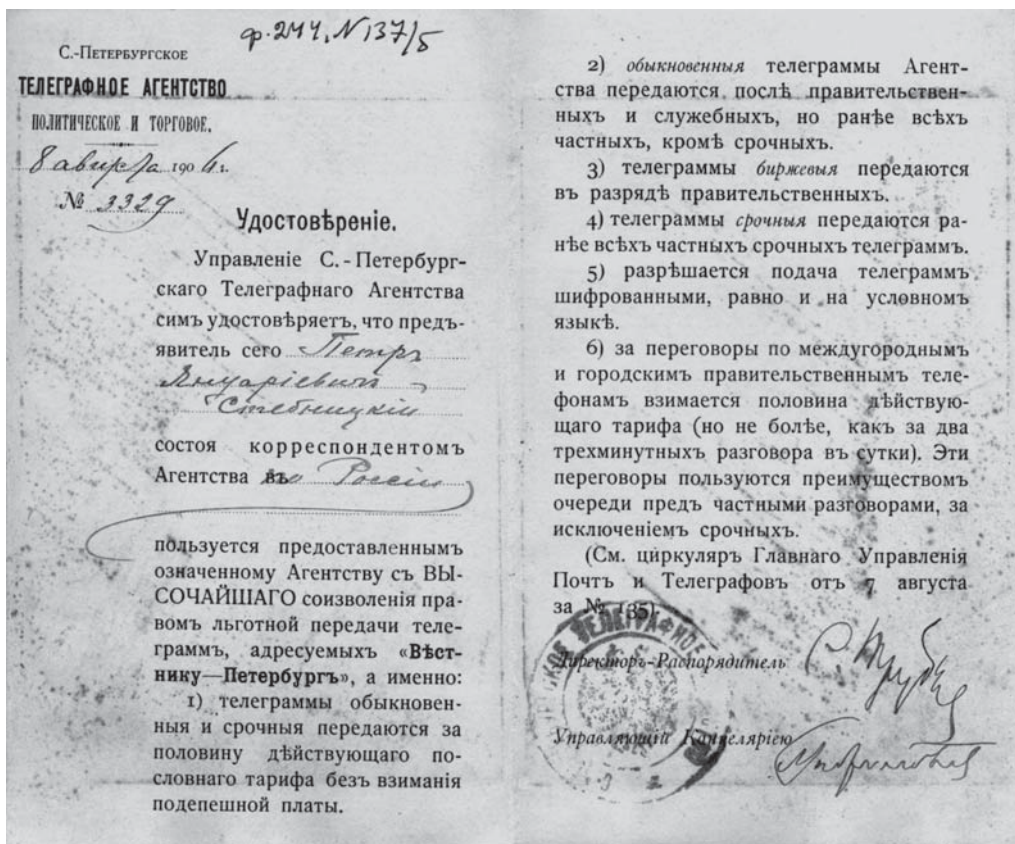 ф. 244, N 137/5
С.-Петербургское
ТЕЛЕГРАФНОЕ АГЕНТСТВО
ПОЛИТИЧЕСКОЕ И ТОРГОВОЕ.
8 августа 1904 г.
№ 3329
Удостовѣреніе.
Управленіе С.-Петербург-
скаго Телеграфнаго Агентства
симъ удостовѣряетъ, что предъ-
явитель сего Петръ
Януаріевичъ
Стебницкій
состоя корреспондентомъ
Агентства во Россіи
пользуется предоставленнымъ
означенному Агентству съ ВЫ-
СОЧАЙШАГО соизволенія пра-
вомъ льготной передачи теле-
граммъ, адресуемыхъ «Вѣст-
нику—Петербургъ», а именно:
1) телеграммы обыкновен-
ныя и срочныя передаются за
половину дѣйствующаго по-
словнаго тарифа безъ взиманія
подепешной платы.
2) обыкновенныя телеграммы Агент-
ства передаются послѣ правительствен-
ныхъ и служебныхъ, но ранѣе всѣхъ
частныхъ, кромѣ срочныхъ.
3) телеграммы биржевыя передаются
въ разрядѣ правительственныхъ.
4) телеграммы срочныя передаются ра-
нѣе всѣхъ частныхъ срочныхъ телеграммъ.
5) разрѣшается подача телеграммъ
шифрованными, равно и на условномъ
языкѣ.
6) за переговоры по междугороднымъ
и городскимъ правительственнымъ теле-
фонамъ взимается половина дѣйствую-
щаго тарифа (но не болѣе, какъ за два
трехминутныхъ разговора въ сутки). Эти
переговоры пользуются преимуществомъ
очереди предъ частными разговорами, за
исключеніемъ срочныхъ.
(См. циркуляръ Главнаго Управленія
Почтъ и Телеграфовъ отъ 7 августа
за № 135).
ТЕЛЕГРАФНОЕ
Директоръ-Распорядитель
Управляющій Канцеляріею